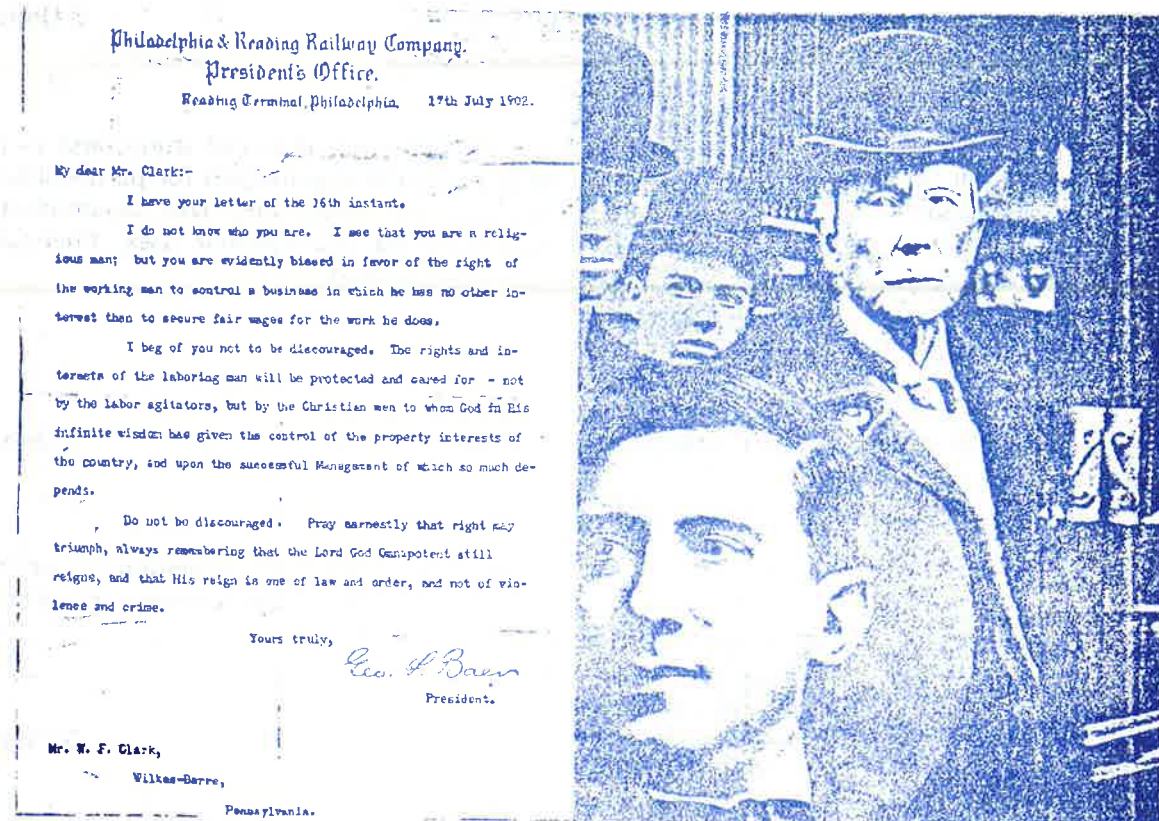 Philadelphia & Reading Railway Company.
President's Office.
Reading Terminal, Philadelphia. 17th July 1902.
My dear Mr. Clark:-
I have your letter of the 16th instant.
I do not know who you are. I see that you are a relig-
ious man; but you are evidently biased in favor of the right of
the working man to control a business in which he has no other in-
terest than to secure fair wages for the work he does.
I beg of you not to be discouraged. The rights and in-
terests of the laboring man will be protected and cared for - not
by the labor agitators, but by the Christian men to whom God in His
infinite wisdom has given the control of the property interests of
the country, and upon the successful Management of which so much de-
pends.
Do not be discouraged. Pray earnestly that right may
triumph, always remembering that the Lord God Omnipotent still
reigns, and that His reign is one of law and order, and not of vio-
lence and crime.
Yours truly,
Geo. F. Baer
President.
Mr. W. F. Clark,
Wilkes-Barre,
Pennsylvania.